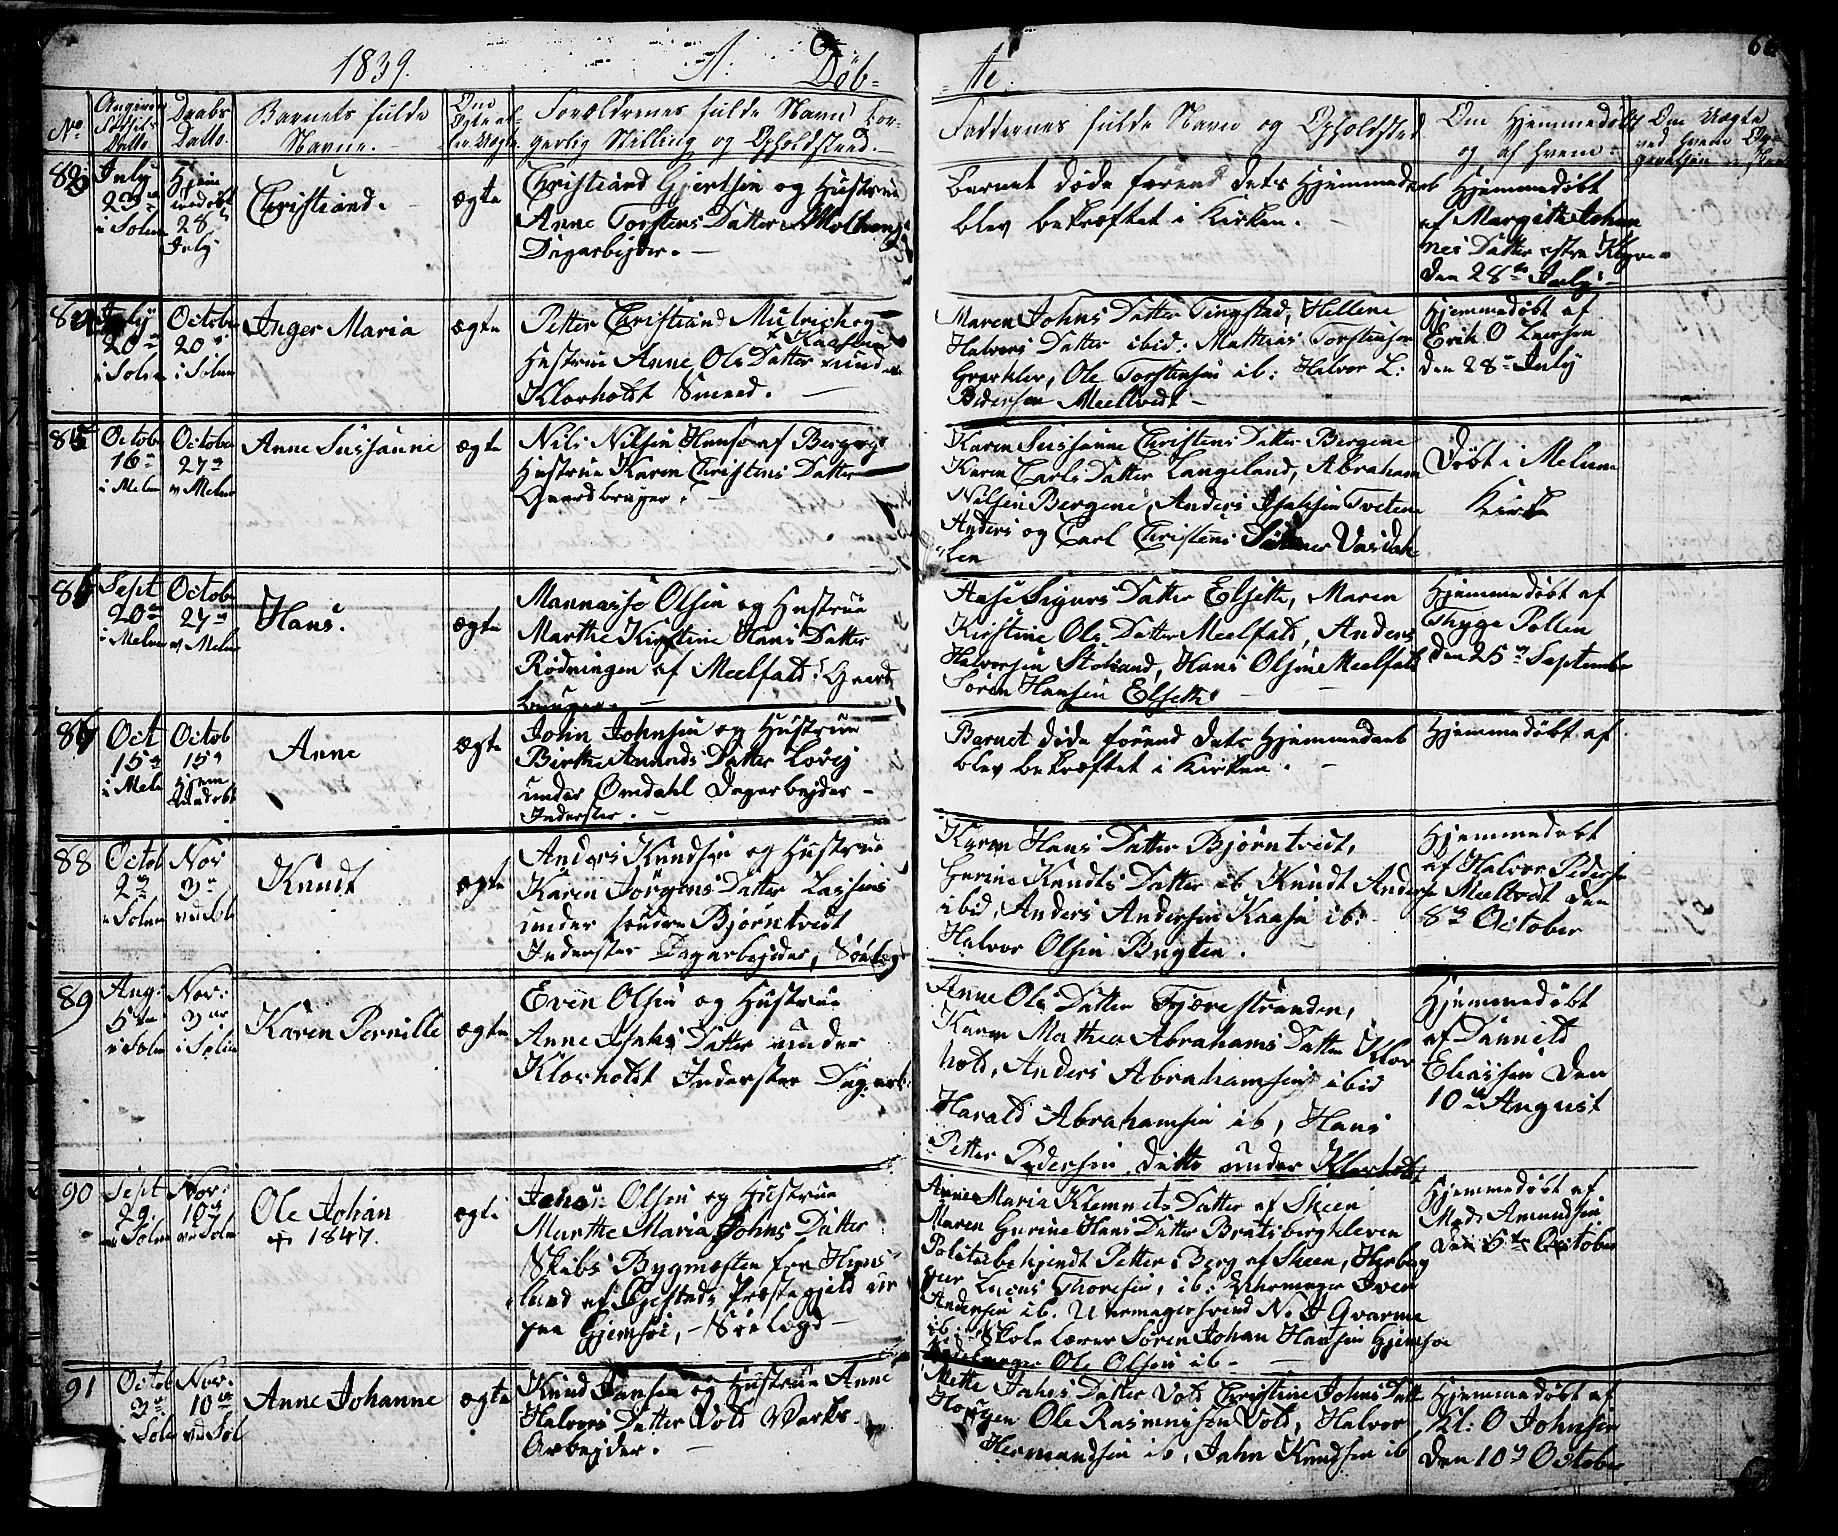 1839.
A.
Döb-
te.
66
No
Angiven Födsels Datto
Daabs Datto.
Barnets fulde Navne.
Om Ægte el- ler Uægte
Forældrenes fulde Navn, bor-
gerlig Stilling og Opholdsted.
Faddernes fulde Navn og Opholdsted
Om Hjemmedöbt
og af hvem:
Om Uægte
ved hvem
July
23
i Solum
Hjem
medöbt
28
July
Christiand.
ægte
Christiand Gjertsen og Hustrue
Anne Torstens Datter
Dagarbejder.
Barnet döde förend dets Hjemmedaab
blev bekræftet i Kirken.
Hjemmedöbt
af Margithe Johan
nes Datter
den 28de July
July
20
i Solum
October
20
i Solum
Inger Maria
ægte
Petter Christiand og
Hustrue Anne Ols Datter Kaasen und
Klovholdt Smeed.
Maren Johns Datter Tingstad, Hellene
Halvors Datter ibid: Mathias Torstensen
Ole Torstensen ib: Halvor L:
Pedersen Meelkvidt
Hjemmedöbt af
Erik O Larsen
den 28 July
85
Octobr
16
i Melum
October
27
v Melum
Anne Sussanne
ægte
Nils Nilsen af Berge og
Hustrue Karen Christens Datter
Gaardbruger.
Karen Sussanne Christens Datter Bergene
Karen Carls Datter Langeland, Abraham
Nilsen Bergene, Anders Isaksen Tvetene
Anders og Carl Christens Sönner Vasdah-
len
Döbt i Melum
Kirke
86
Sept
20
i Melum
October
27
v Melum
Hans.
ægte
Mannasse Olsen og Hustrue
Marthe Kirstine Hans Datter
Rødningen af Meelfald, Gaard
bruger.
Aase Sigurs Datter Elseth, Maren
Kirstine Ols Datter Meelfald, Anders
Halvorsen Stolsand, Hans Olsen Meelfald
Sören Hansen Elseth
Hjemmedöbt af
Thyge Pollen
den 25 September
Oct
15
i Melum
Octob
15
hjem
mdöbt
Anne
ægte
John Johnsen og Hustrue
Birthe Amunds Datter
under Omdahl Dagarbejder
Inderster.
Barnet döde förend dets Hjemmedaab
blev bekræftet i Kirken.
Hjemmedöbt af
88
Octob
2
i Solum
Nov
3
ved Solum
Knudt
ægte
Anders Knudsen og Hustrue
Karen Jörgens Datter
under söndre Björntvedt
Inderster Dagarbejder, Sölægd
Karen Hans Datter Björntvedt,
Gurine Knudts Datter ib Knudt Anders
ibid, Anders Andersen Kaasa ib:
Halvor Olsen Bugten.
Hjemmedöbt
af Halvor Peders
Meelkvidt den
8 October
89
Aug:
5te
i Solum
Nov:
3
i Solum
Karen Pernille
ægte
Even Olsen og Hustrue
Anne Isaks Datter under
Klovholdt Inderster Dagarb
Anne Ols Datter Fjærestranden,
Karen Mathea Abrahams Datter Klov
hold, Anders Abrahamsen ibid
Harald Abrahamsen ib, Hans
Petter Pedersen ditto under Klovholt
Hjemmedöbt
af Danniel
Eliassen den
10 August
90
Sept
29.
i Solum
Nov:
10
ved Solum
Ole Johan
+ 1847.
ægte
Olsen og Hustrue
Marthe Maria Johns Datter
Skibs Bygmester fra
land af Gjestads Præstegjeld nu
paa Gjemsöe, Sölægd
Anne Maria Klemmets Datter af Skeen
Maren Gurine Hans Datter Bratsbergkleven
Politiebetjendt Petter Berg af Skeen,
Lucas Thoresen, ib: Uhrmager Iver
Andersen ib. Uhrmagersvend N. J Qvarme
ib: Skolelærer Sören Johan Hansen Gjemsöe
Ole Olsen ib.
Hjemmedöbt af
Mads Amundsen
den 6te October
91
Octob
3
i Solum
Nov:
10
ved Sol
Anne Johanne
ægte
Knud Jansen og Hustrue Anne
Halvors Datter Vold Værks-
Arbejder.
Mette Jahns Datter Vold, Christine Johns Datt
Ole Rasmussen Vold, Halvor
Hermandsen ib, Jahn Knudsen ib
Hjemmedöbt af
Kl: O Johnsen
den 10 October